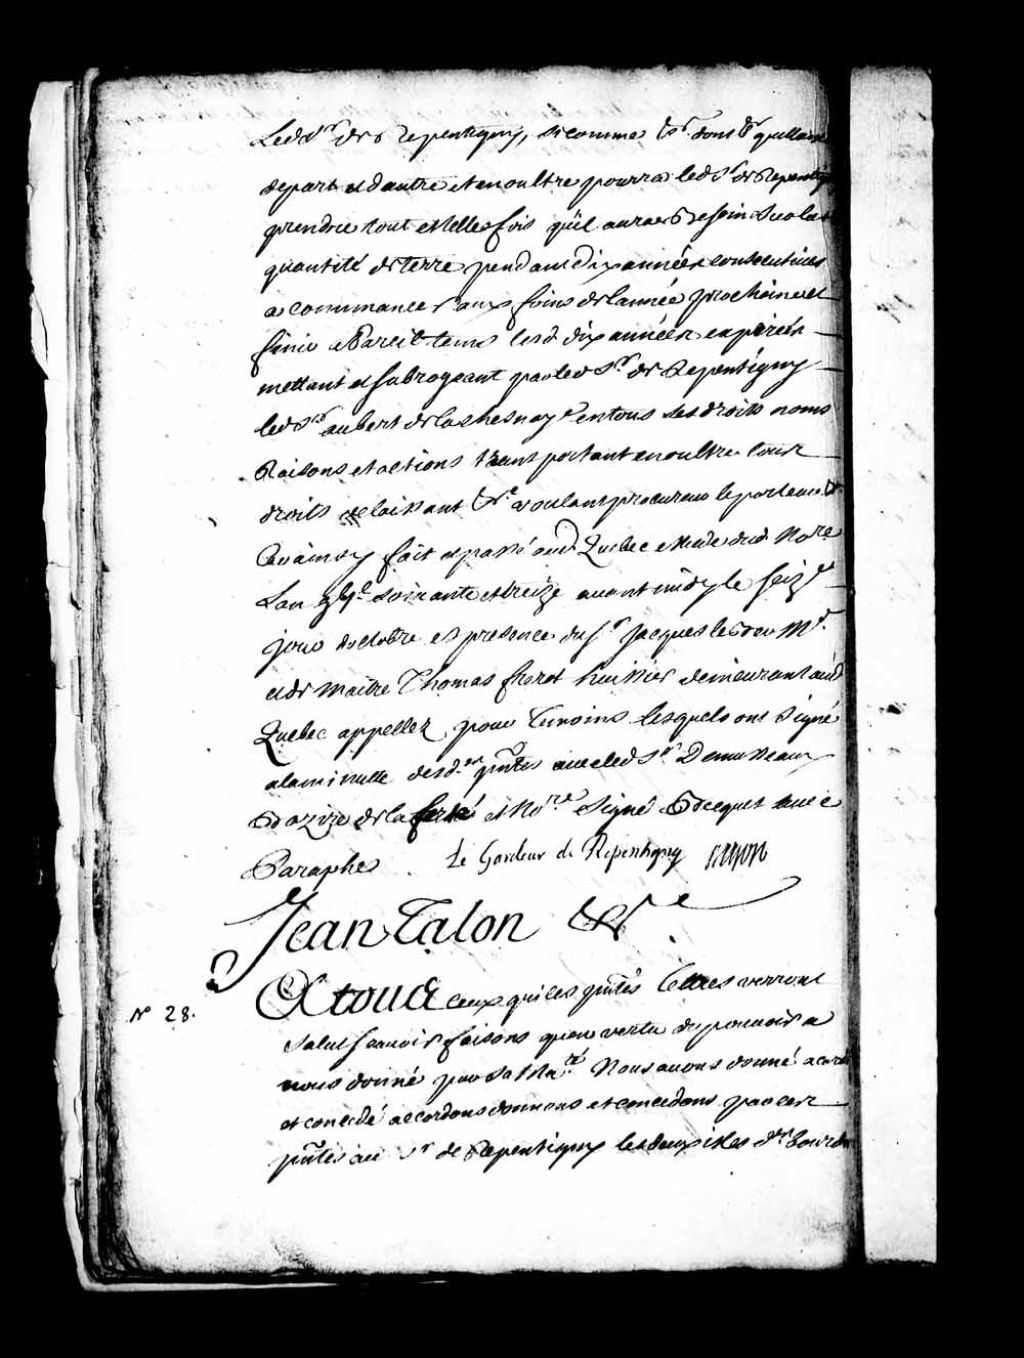 Ledt Sr de Repentigny, si comme &c. dont &c quittant
depart et dautre et en oultre pourra led Sr de Repentigny
prendre tout et telles fois quil aura besoin de la
quantité de terre pendant dix années consecutives
a commancer aux foins de lannée prochaine et
finir a Pareil tems lesd dix années expirées
mettant et subrogeant par led Sr de Repentigny
led Sr aubert de la chesnaye en tous ses droits noms
Raisons et actions transportant en oultre tous
droits delaissant &c voulant procureur le porteur &c
Car ainsy fait et passé aud Quebec Etude dud Nore
Lan gbjc soixante et treize avant midy le seize
jour doctobre es presence du Sr Jacques le ber Md
et de Maitre Thomas frerot huissier demeurant aud
Quebec appellez pour temoins lesquels ont signé
a la minutte des dtes pntes avec led Sr Demusseaux
Bazire de la ferté et Nore signé Becquet avec
Paraphes Le Gardeur de Repentigny
Jean Talon &c
No 28. A tous ceux qui ces pntes lettres verront
salut scavoir faisons quen vertu du pouvoir a
nous donné par sa Maté Nous avons donné acordé
et concedé accordons donnons et concedons par ces
pntes au Sr de Repentigny les deux isles dtes bourdon